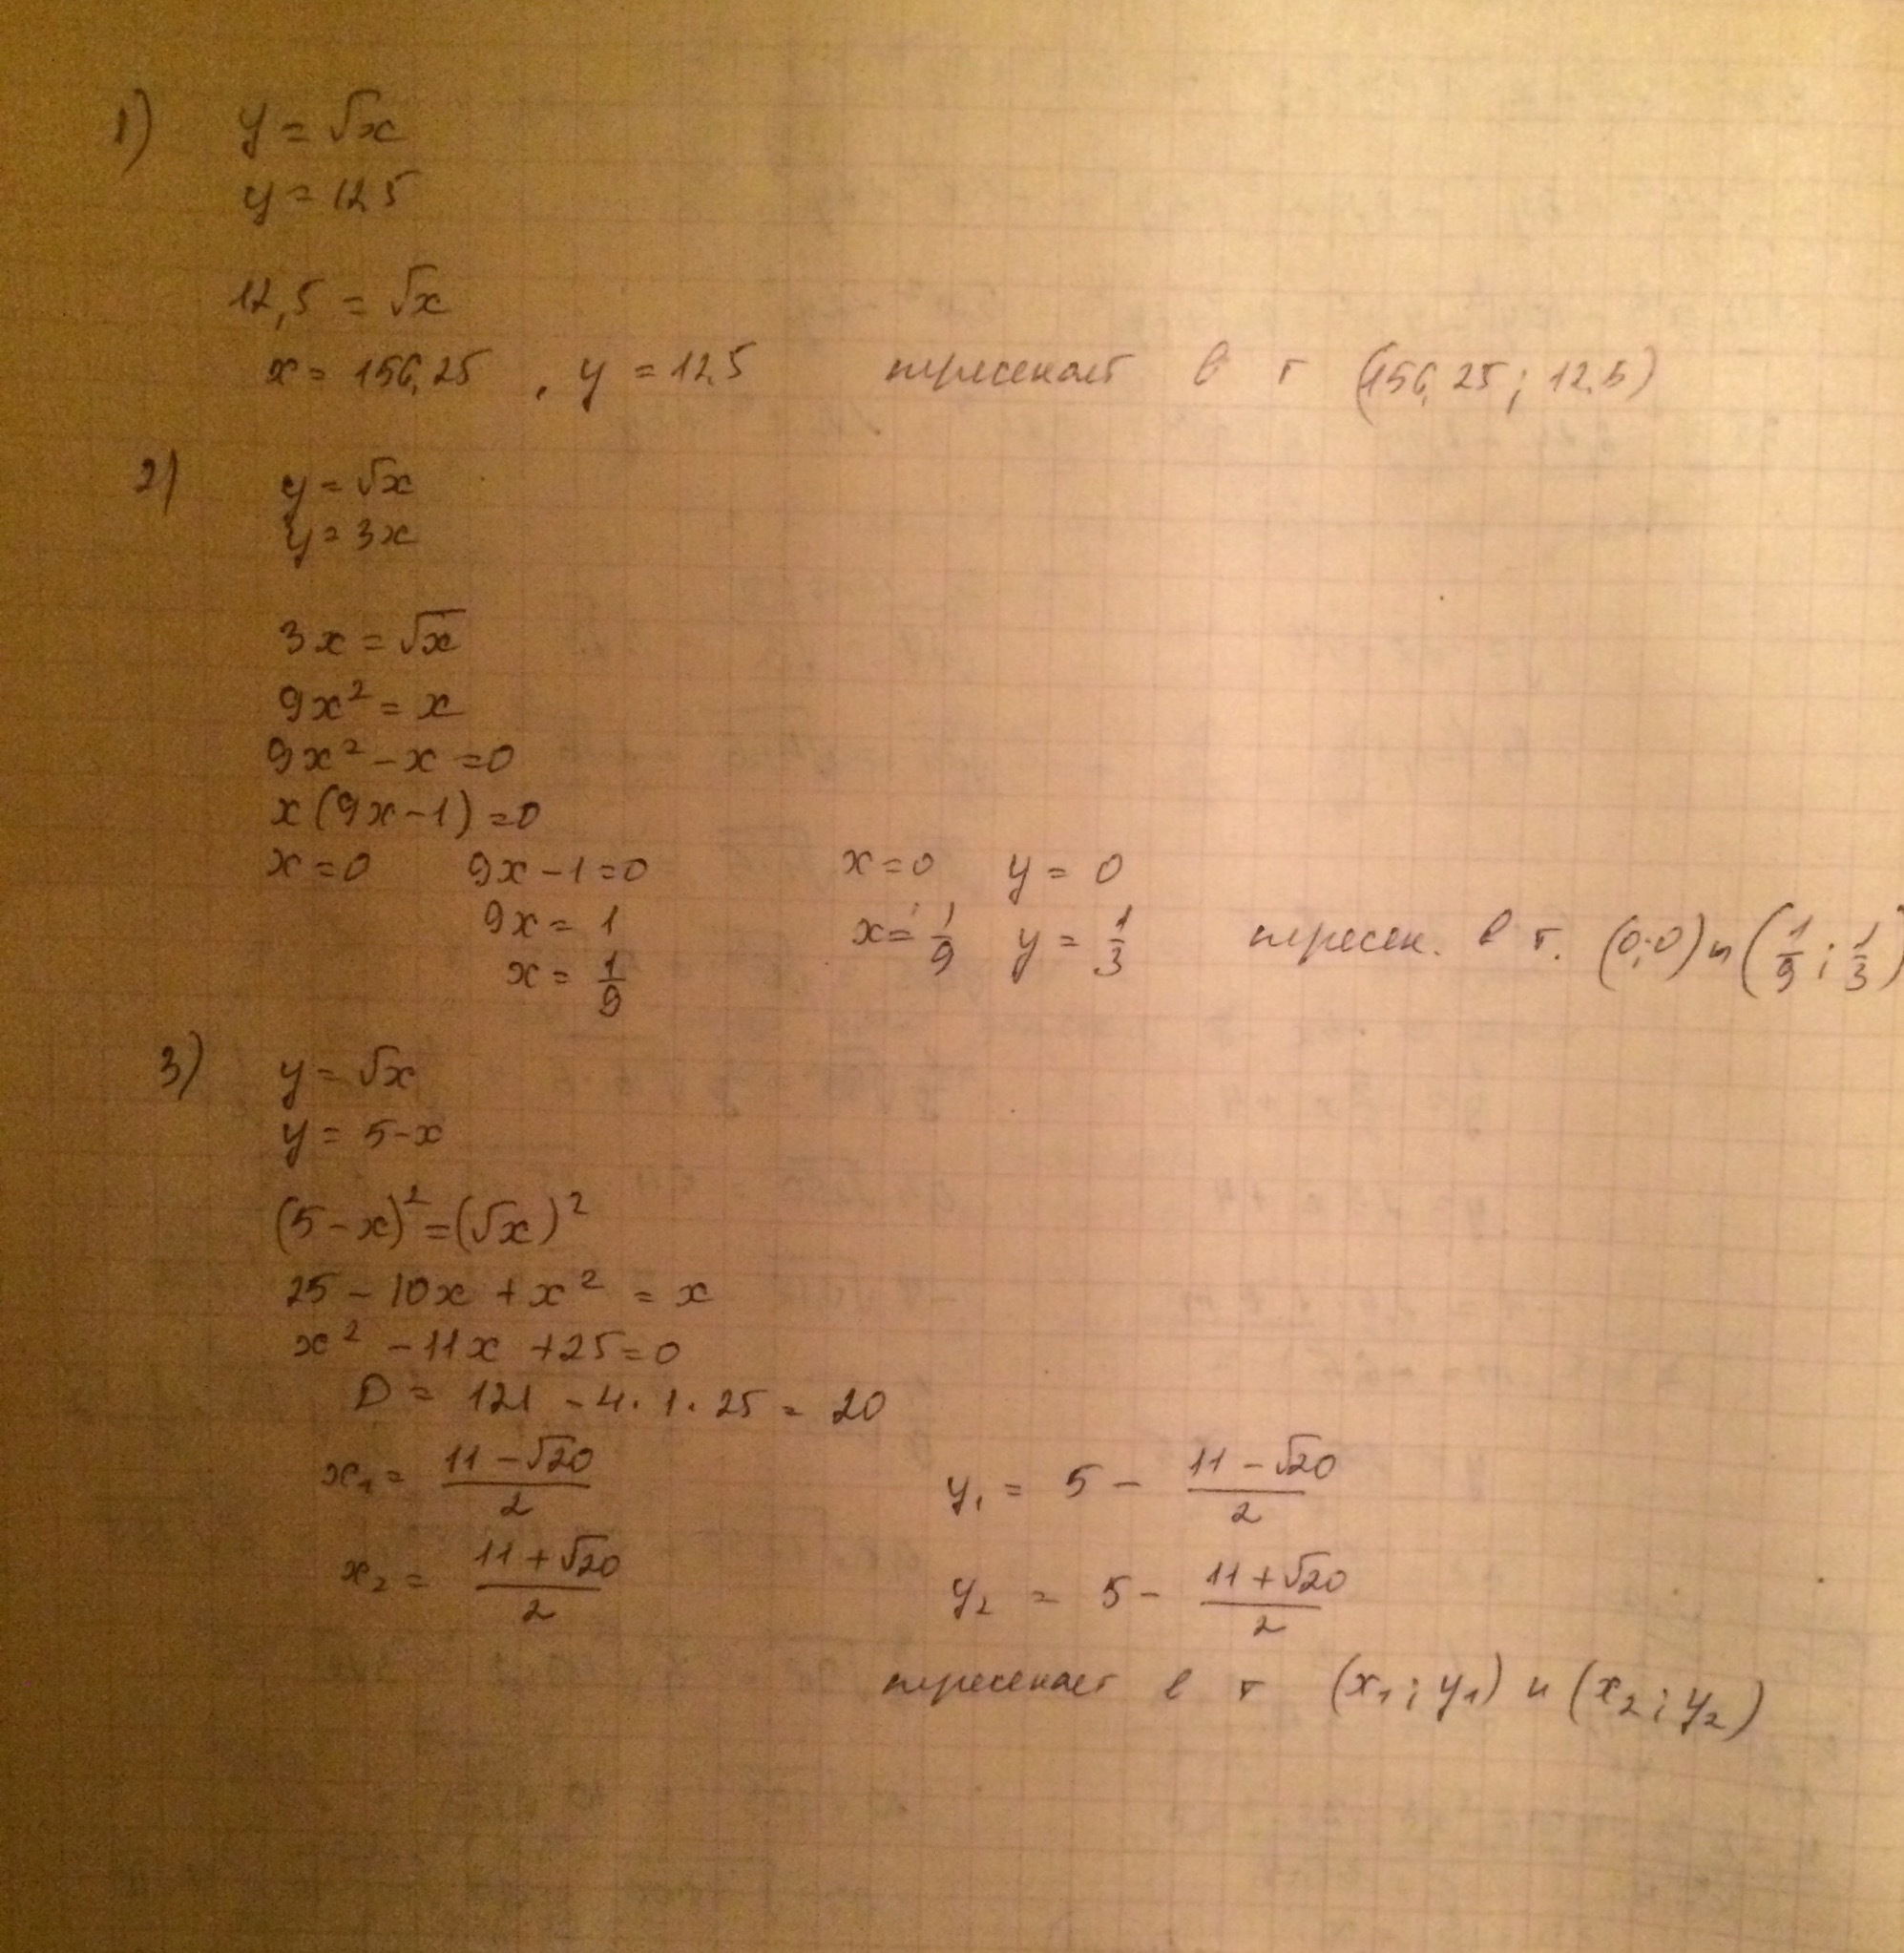 1) y = √x
y = 12,5
12,5 = √x
x = 156,25 , y = 12,5 пересекает в т (156,25 ; 12,5)
2) y = √x
y = 3x
3x = √x
9x² = x
9x² - x = 0
x(9x - 1) = 0
x = 0 9x - 1 = 0 x = 0 y = 0
9x = 1 x = 1/9 y = 1/3 пересек. в т. (0;0) и (1/9 ; 1/3)
x = 1/9
3) y = √x
y = 5-x
(5 - x)² = (√x)²
25 - 10x + x² = x
x² - 11x + 25 = 0
D = 121 - 4 · 1 · 25 = 20
x₁ = (11 - √20)/2 y₁ = 5 - (11 - √20)/2
x₂ = (11 + √20)/2 y₂ = 5 - (11 + √20)/2
пересекает в т (x₁ ; y₁) и (x₂ ; y₂)